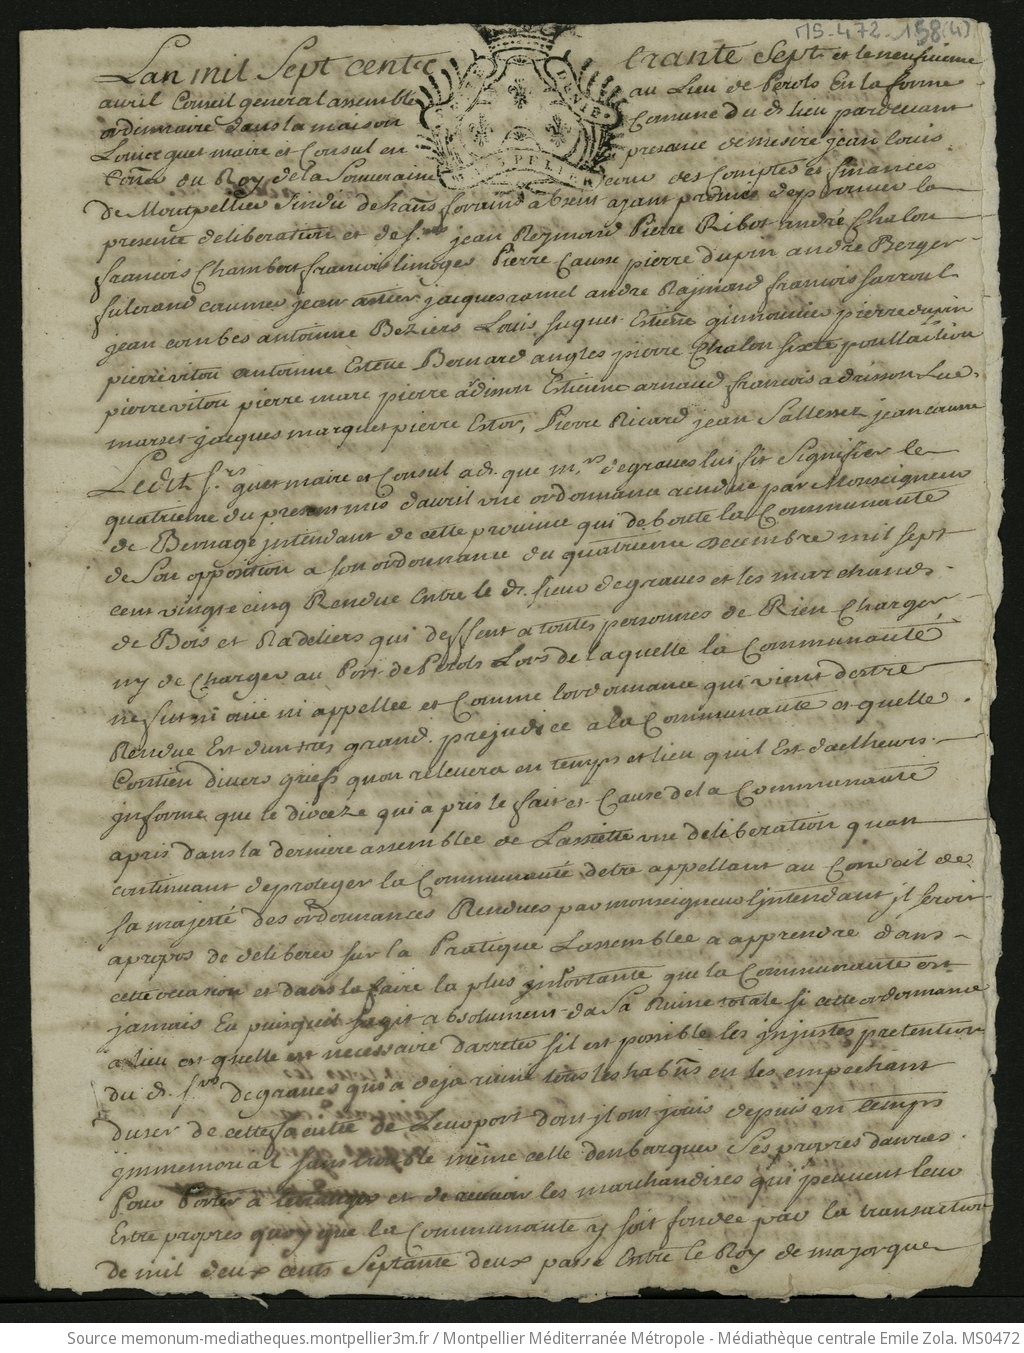 MS-472-158(4)
Lan mil Sept cent q trante Sept et le neufuieme
auril Conseil general assemblé au Lieu de Perols En la forme
ordinaire dans la maison Comune du d. lieu pardeuant
Louis quet maire et Consul en presance de messire jean louis
Conër du Roy de la Souueraine Cour des Comptes et finances
De Montpellier Sindic de habs forains absent ayant promis dapprouuer la
presente deliberation et de srs jean Reymond Pierre Ribot andré Chalon
francois Chambert francois limoges Pierre Causse pierre dupin andré Berger
fulcrand caumes jean jacques ramel andre Raymond francois farroul
jean combes antoinne Beziers Louis huques Estiene pierre dupin
pierre vitou antoinne Esteue Bernard angles pierre Chalon
pierre vitou pierre marc pierre adisson Estienne arnaud francois adisson Luc
marses jacques marques pierre Estor, Pierre Ricard jean Sallesses jean causse
Ledit sr quet maire et Consul a dt que mr degraues lui fit Signifier le
quatrieme du present mois dauril une ordonnance rendue par Monseigneur
de Bernage jntendant de cette prouince qui deboute la Communauté
de Son opposition a son ordonnance du quatrieme decembre mil sept
cent vingt cinq Rendue Entre le d. sieur degraues et les marchands
de Bois et Radeliers qui deffent a toutes personnes de Rien Charger
ny de Charger au Port de Perols Lors de laquelle la Communauté
ne fut ni ouie ni appellee et Comme lordonnance qui vient destre
Rendue Est dun tres grand prejudice a la Communauté et quelle
Contien diuers griefs quon releuera en temps et lieu quil Est dailheurs
jnforme que le dioceze qui a pris le fait et Cause de la Communauté
apris dans la derniere assemblée de Lassiette une deliberation quan
continuant de proteger la Communauté detre appellant au Conseil de
sa majesté des ordonnances Rendues par monseigneur Ljntendant jl seroit
apropos de deliberer sur la Pratique Lassemblée a apprendre dans
cette occasion et dans lafaire la plus jmportante que la Communauté ait
jamais Eu puisquil sagit absolument de Sa Ruine totale si cette ordonnance
a lieu et quelle est necessaire darreter sil est possible les jnjustes pretention
du d. sr degraues qui a deja ruiné tous les habns en les empechant
duser de cette faculté de Leur port dont jl ont jouis depuis un temps
jmmemorial sans trouble même celle denbarquer Ses propres danrees
Pour Porter a et de receuoir les marchandises qui peuuent leur
Estre propres quoy que la Communauté y soit fondée par la transaction
de mil deux cents Septante deux passé Entre le Roy de majorque
Source memonum-mediatheques.montpellier3m.fr / Montpellier Méditerranée Métropole - Médiathèque centrale Emile Zola. MS0472